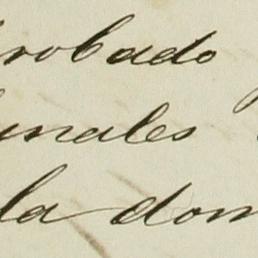 robado
unales
la dom